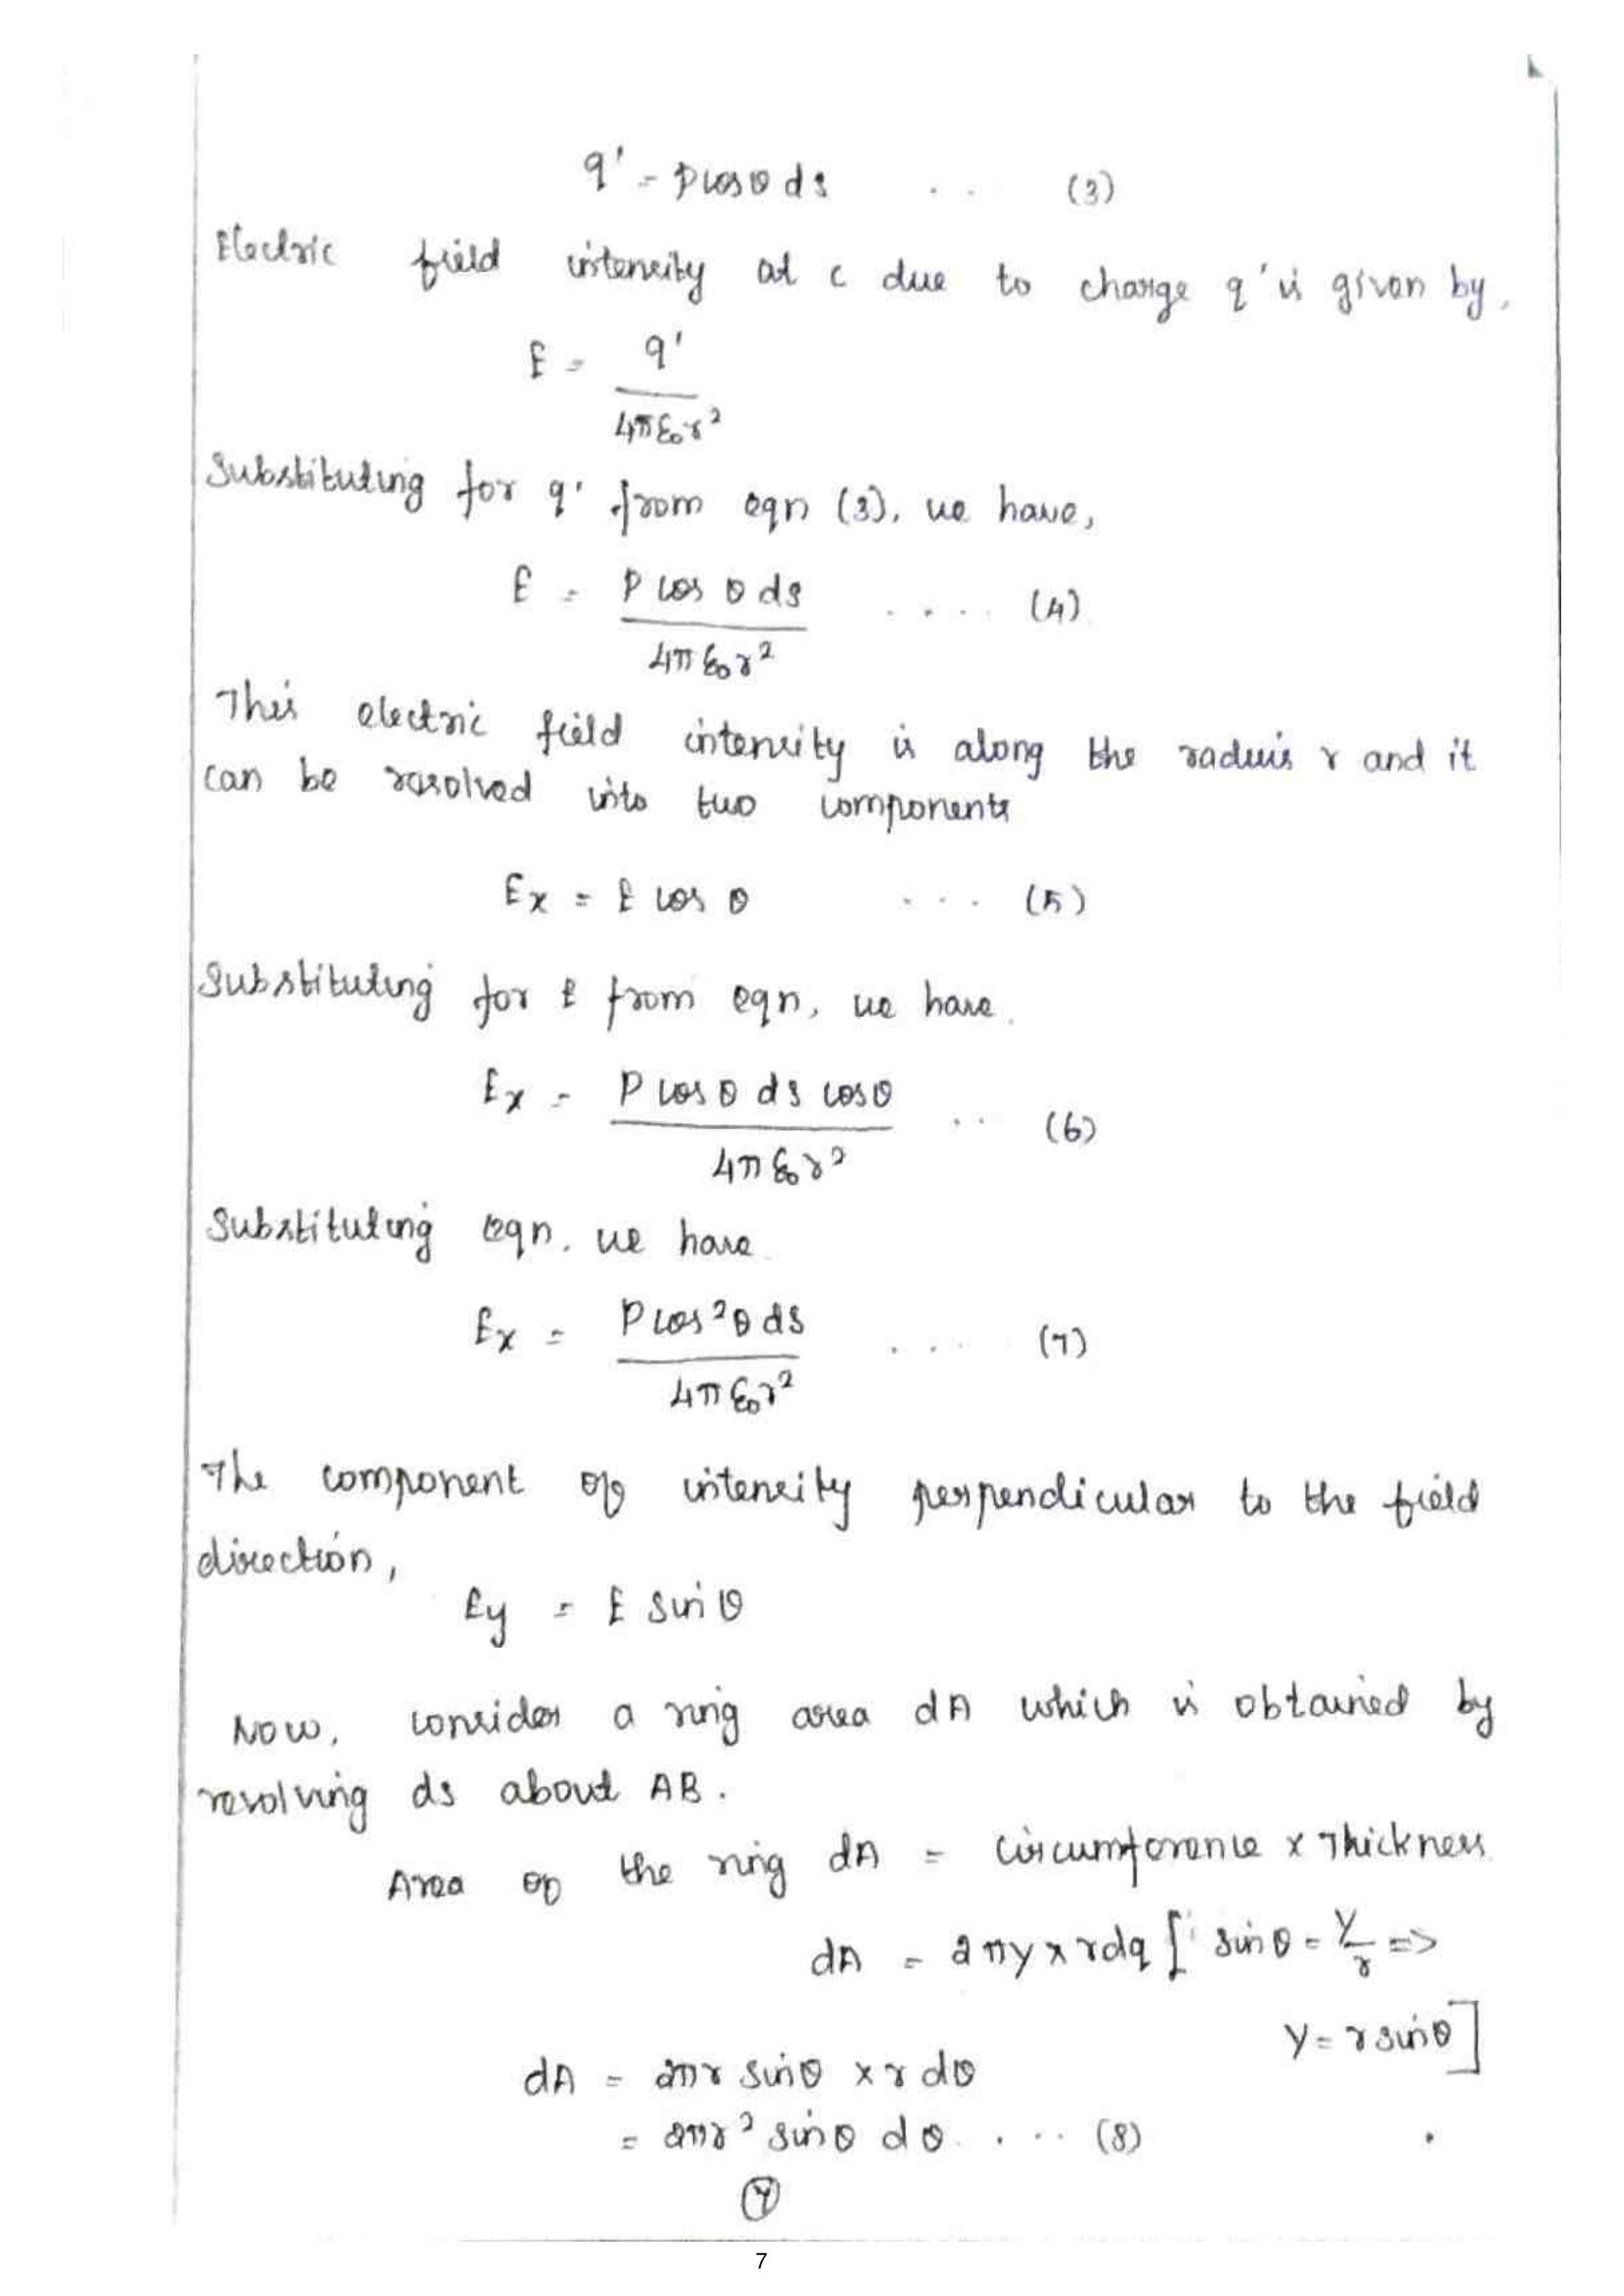 q' = P cos θ ds . . (3)
Electric field intensity at c due to charge q' is given by,
E = q' / 4πε₀r²
Substituting for q' from eqn (3), we have,
E = P cos θ ds / 4πε₀r² .... (4)
This electric field intensity is along the radius r and it
can be resolved into two components
Ex = E cos θ ... (5)
Substituting for E from eqn, we have.
Ex = P cos θ ds cos θ / 4πε₀r² .. (6)
Substituting eqn, we have.
Ex = P cos²θ ds / 4πε₀r² .... (7)
The component of intensity perpendicular to the field
direction,
Ey = E sin θ
Now, consider a ring area dA which is obtained by
revolving ds about AB.
Area of the ring dA = circumference x Thickness
dA = 2πy x rdq [ sin θ = y/r =>
y = r sin θ ]
dA = 2πr sin θ x r dθ
= 2πr² sin θ dθ .... (8)
7
7